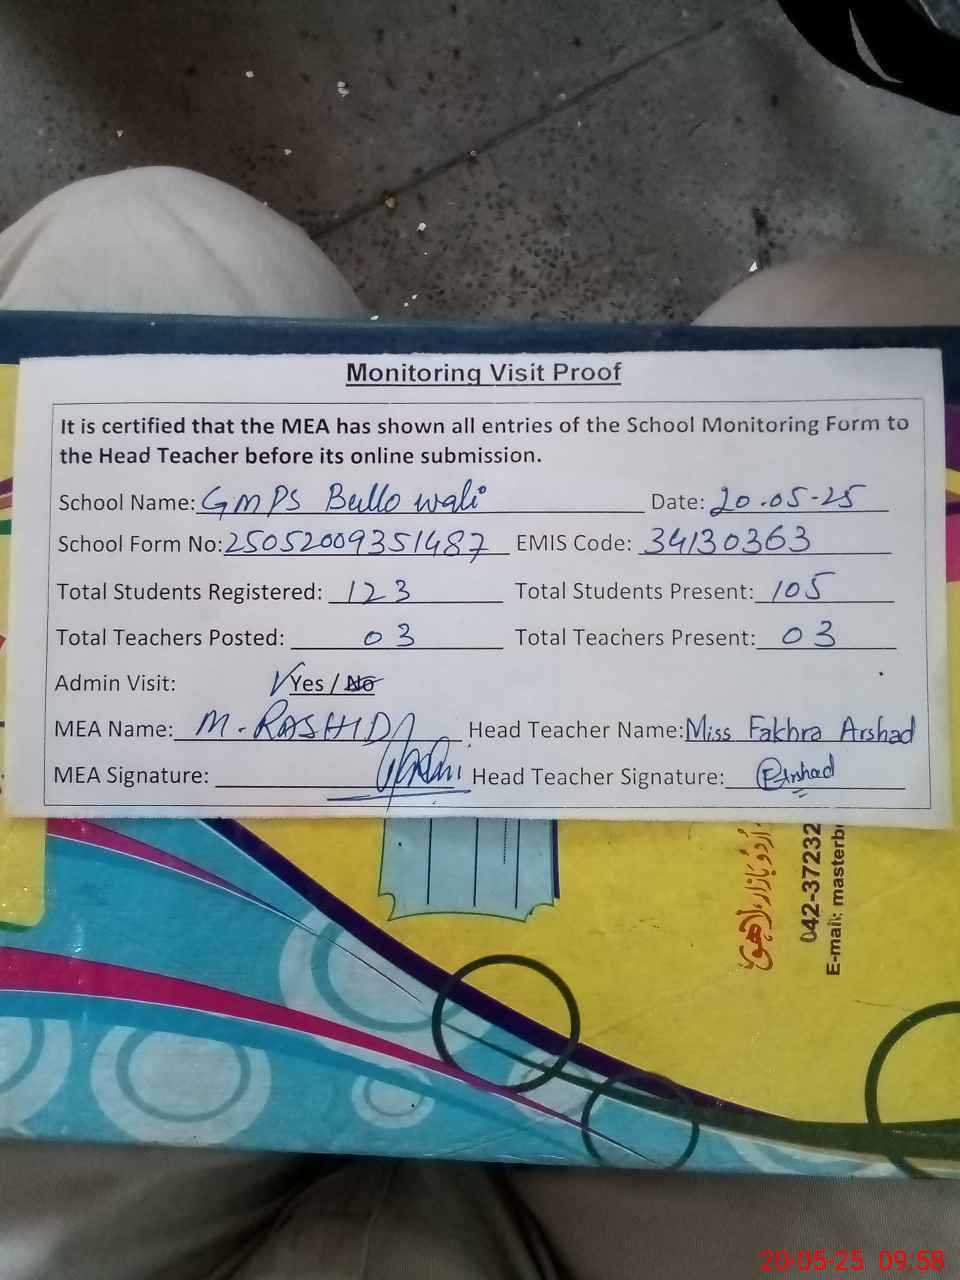 Monitoring Visit Proof
It is certified that the MEA has shown all entries of the School Monitoring Form to
the Head Teacher before its online submission.
School Name: GMPS Bullo wali Date: 20-05-25
School Form No: 25052009351487 EMIS Code: 34130363
Total Students Registered: 123 Total Students Present: 105
Total Teachers Posted: 03 Total Teachers Present: 03
Admin Visit: Yes / No
MEA Name: M. RASHID Head Teacher Name: Miss Fakhra Arshad
MEA Signature: Head Teacher Signature: FArshad
اردو بازار، لاہور
042-37232
E-mail: masterb
20-05-25 09:58